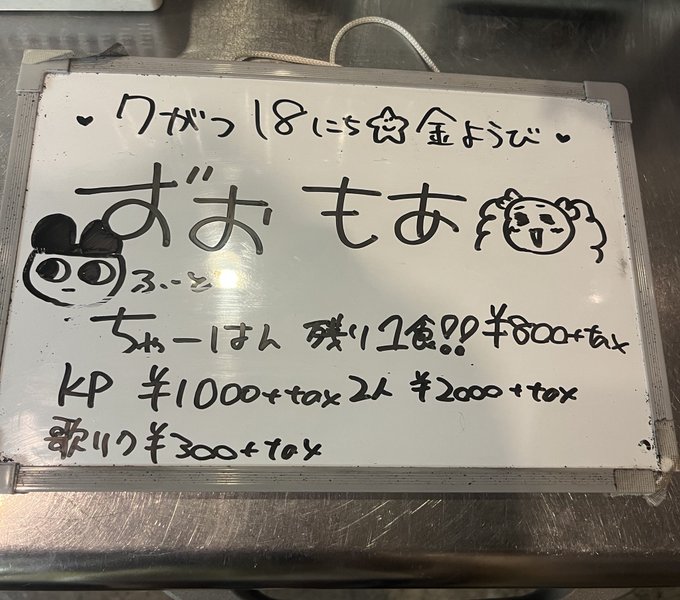 ♥ 7がつ 18にち☆金ようび ♥
ずお もあ
ふーど
ちゃーはん 残り1食!! ¥800+tax
KP ¥1000+tax 2人 ¥2000+tax
歌リク¥300+tax